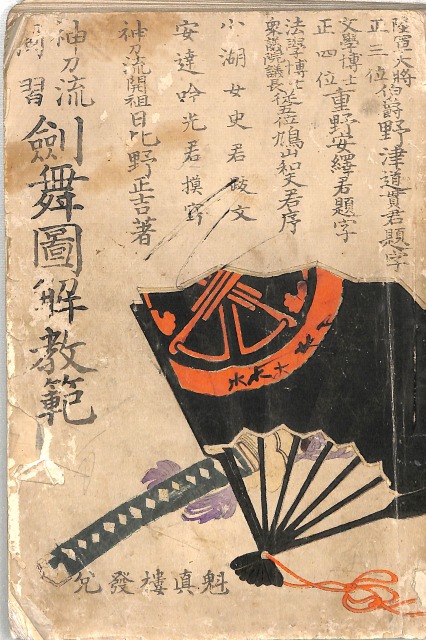 陸軍大将
正三位伯爵野津道貫君題字
文學博士
正四位重野安繹君題字
法學博士
衆議院議長従五位鳩山和夫君序
小湖女史君跋文
安達吟光君摸寫
神刀流開祖日比野正吉著
神刀流
劍舞圖解教範
魁真樓發兌